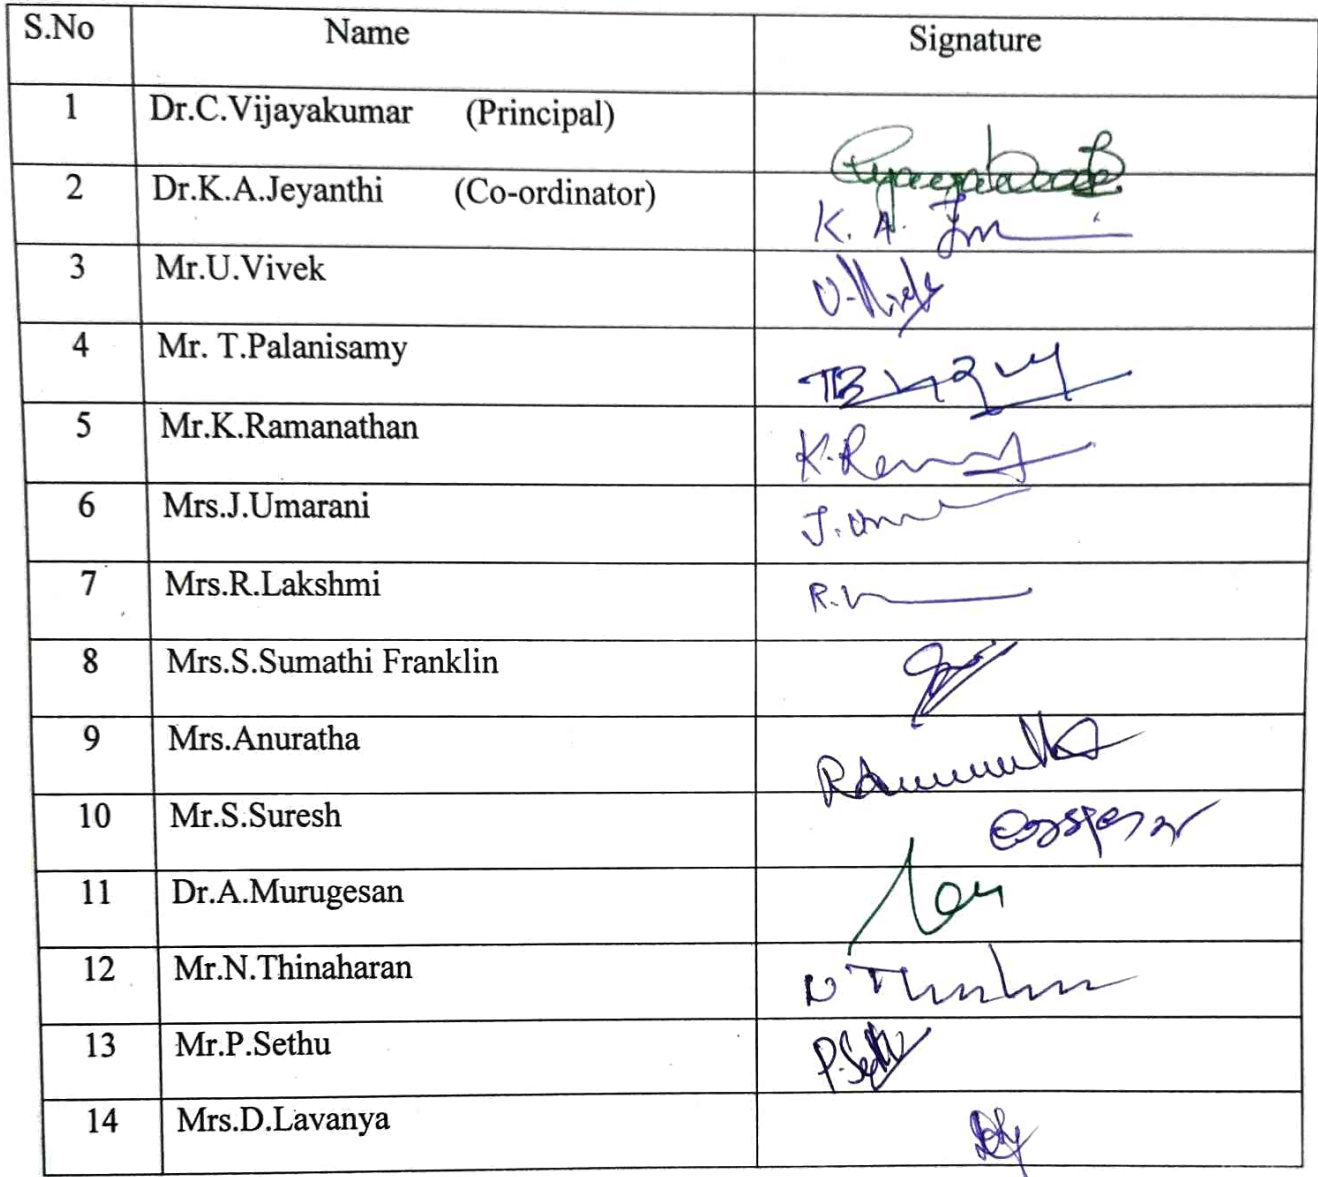 S.No Name Signature
1 Dr.C.Vijayakumar (Principal)
2 Dr.K.A.Jeyanthi (Co-ordinator) K. A.
3 Mr.U.Vivek U.Vivek
4 Mr. T.Palanisamy
5 Mr.K.Ramanathan K.
6 Mrs.J.Umarani J.
7 Mrs.R.Lakshmi R.
8 Mrs.S.Sumathi Franklin
9 Mrs.Anuratha
10 Mr.S.Suresh
11 Dr.A.Murugesan
12 Mr.N.Thinaharan N
13 Mr.P.Sethu P.Sethu
14 Mrs.D.Lavanya